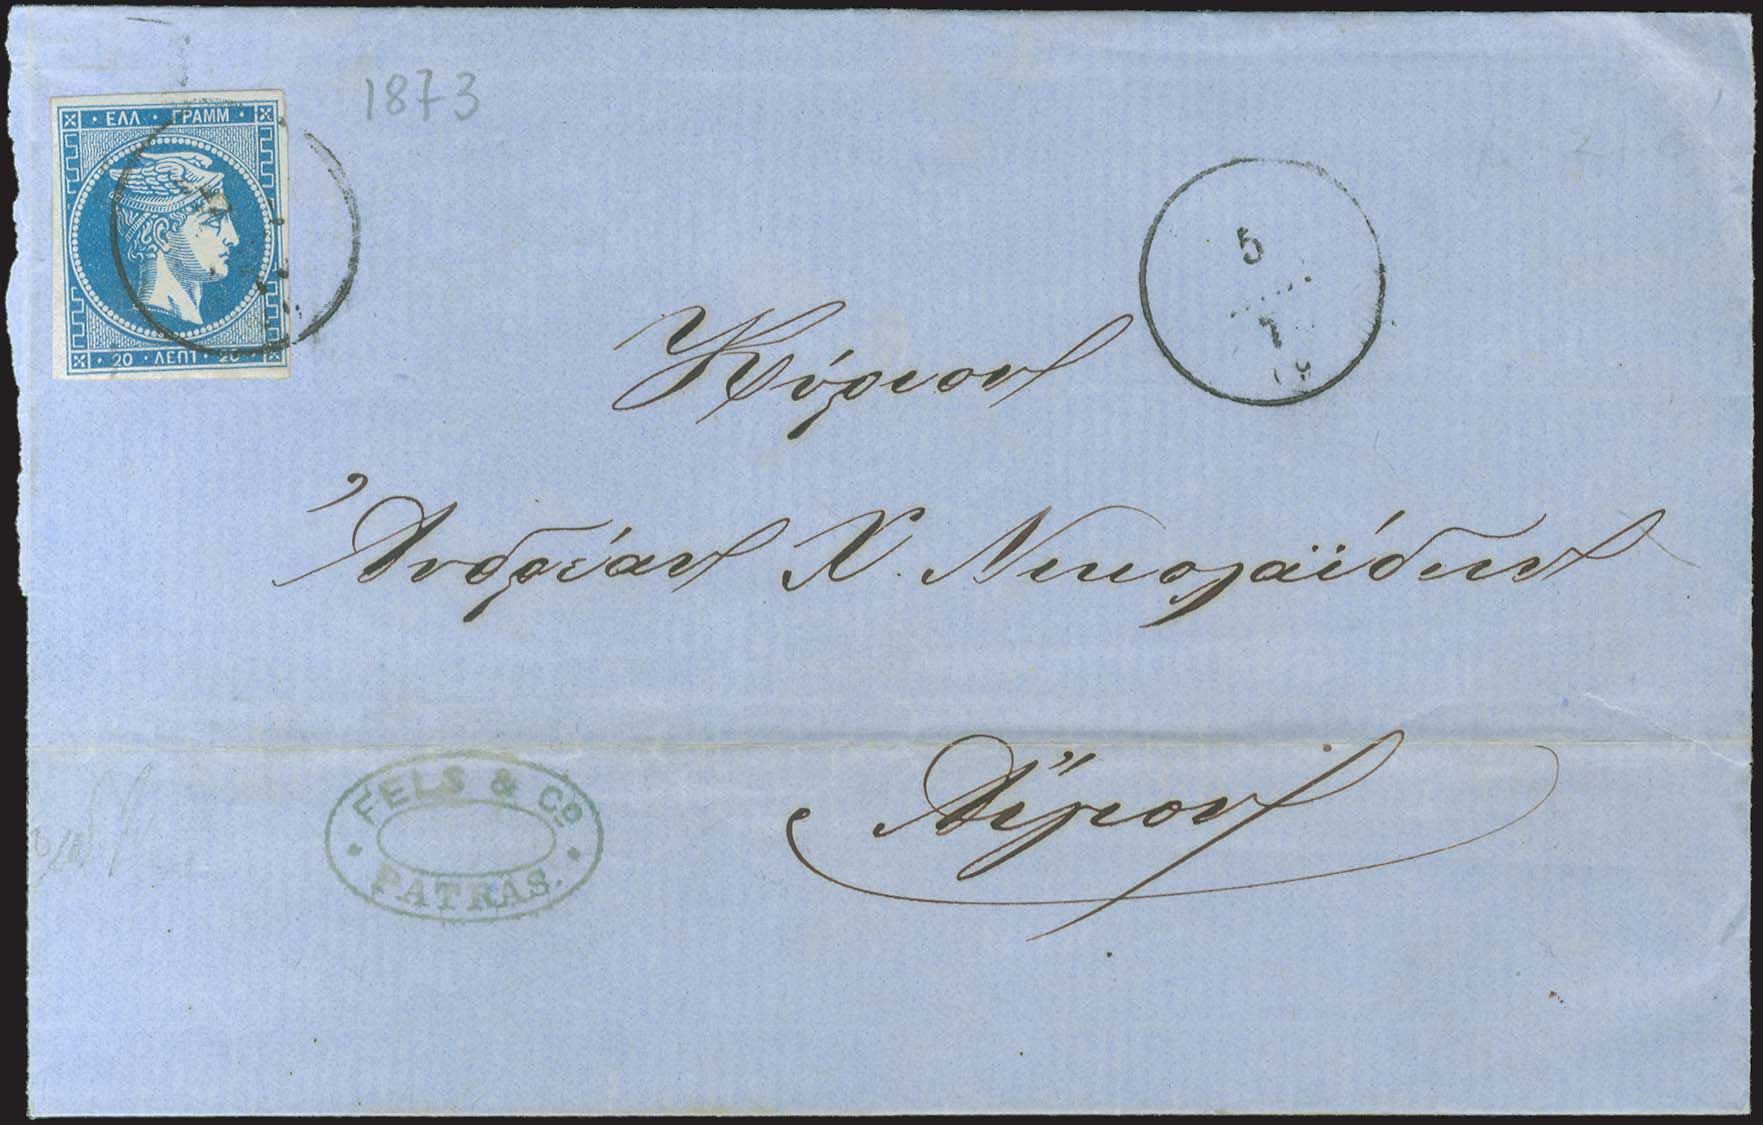 1873
ΕΛΛ · ΓΡΑΜΜ
20 · ΛΕΠΤ · 20
5
7
Κύριον
Ἀνδρέαν Χ. Νικολαΐδην
Αἴγιον
FELS & Co.
PATRAS.